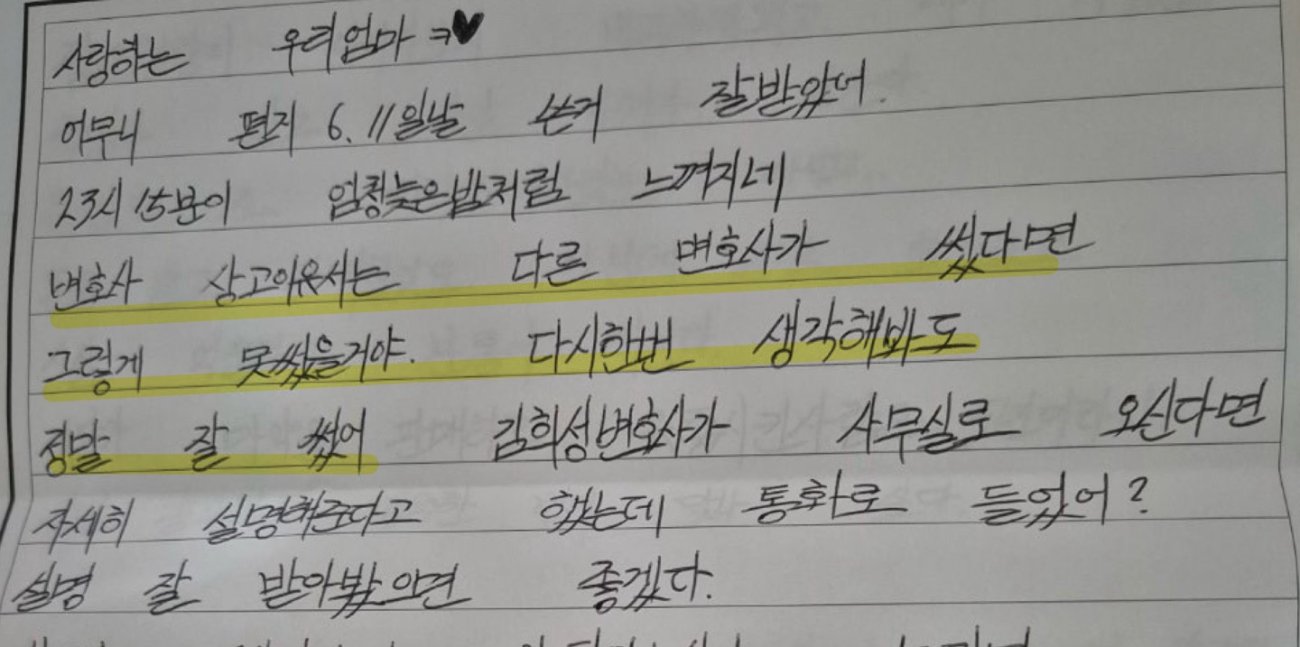 사랑하는 우리엄마 ㅋ♥
어무니 편지 6.11일날 쓴거 잘받았어.
23시 15분이 엄청늦은밤처럼 느껴지네
변호사 상고이유서는 다른 변호사가 썼다면
그렇게 못썼을거야. 다시한번 생각해봐도
정말 잘 썼어 김희성변호사가 사무실로 오신다면
자세히 설명해준다고 했는데 통화로 들었어?
설명 잘 받아봤으면 좋겠다.